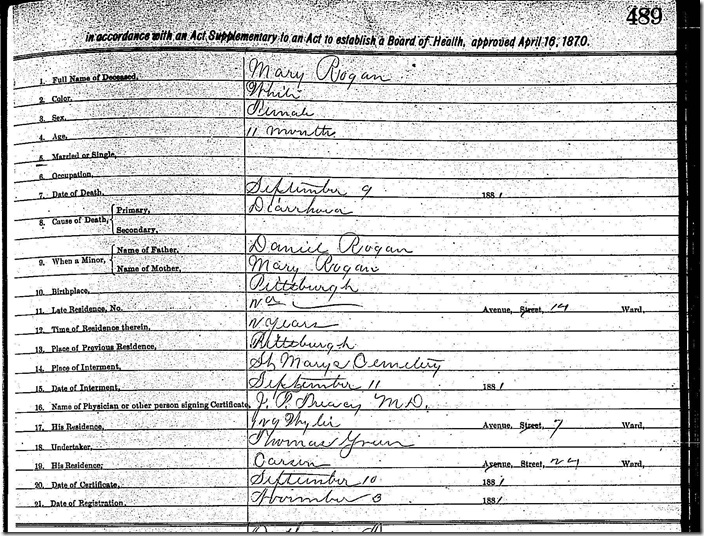 489
in accordance with an Act Supplementary to an Act to establish a Board of Health, approved April 16, 1870.
1. Full Name of Deceased, Mary Rogan
2. Color, White
3. Sex, Female
4. Age, 11 months
5. Married or Single,
6. Occupation,
7. Date of Death, September 9 1881
8. Cause of Death, Primary, Diarrhoea
Secondary,
9. When a Minor, Name of Father, Daniel Rogan
Name of Mother, Mary Rogan
10. Birthplace, Pittsburgh
11. Late Residence, No. Avenue, Street, 14 Ward,
12. Time of Residence therein, years
13. Place of Previous Residence, Pittsburgh
14. Place of Interment, St Marys Cemetery
15. Date of Interment, September 11 1881
16. Name of Physician or other person signing Certificate, M.D.
17. His Residence, Wylie Avenue, Street, 7 Ward,
18. Undertaker, Thomas Green
19. His Residence; Carson Avenue, Street, 24 Ward,
20. Date of Certificate, September 10 1881
21. Date of Registration, November 3 1881